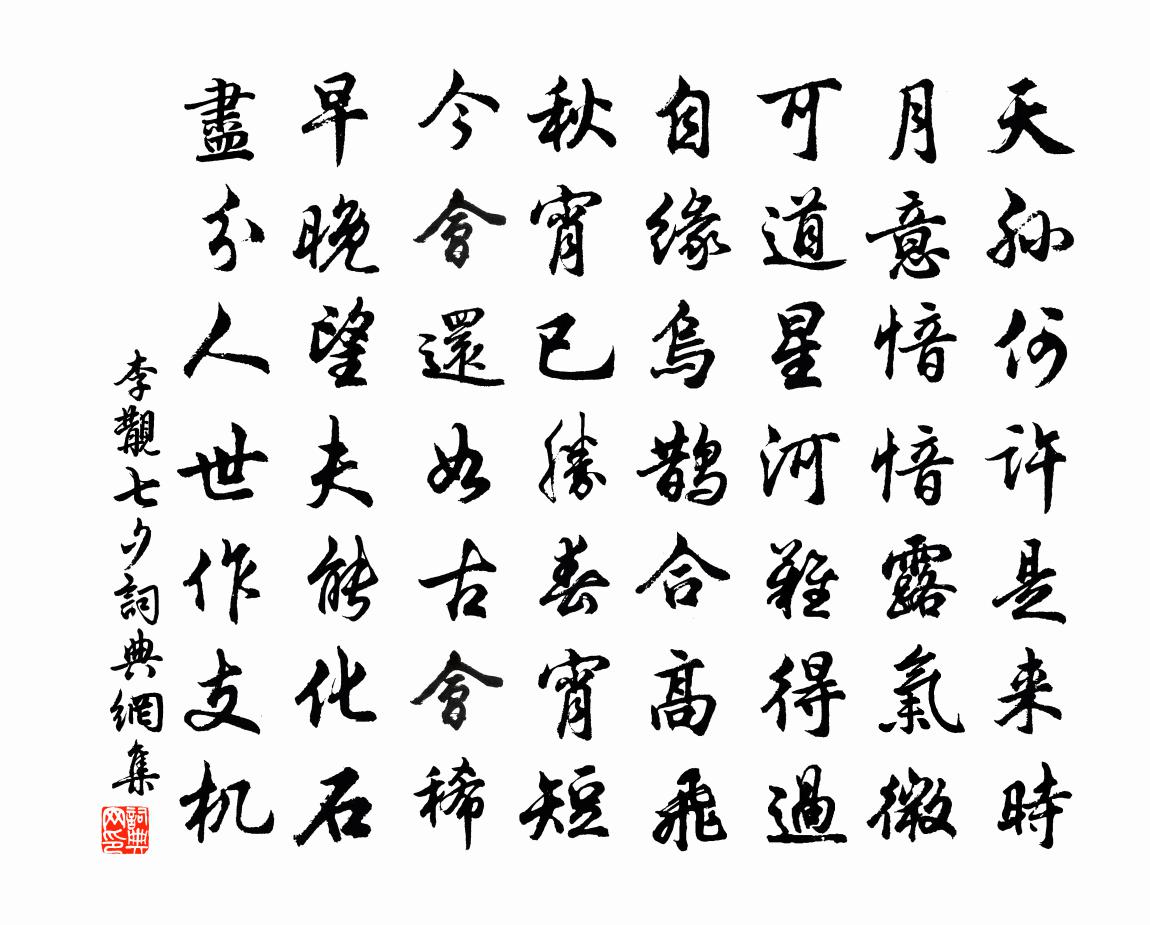 天孫何許是来時
月意愔愔露氣微
可道星河難得過
自緣烏鵲合高飛
秋宵已勝春宵短
今會還如古會稀
早晚望夫能化石
盡分人世作支机
李覯七夕詞典網集
詞典網印